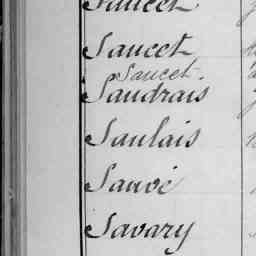 Saucet
Saucet
Saucet.
Saudrais
Saulais
Sauvé
Savary